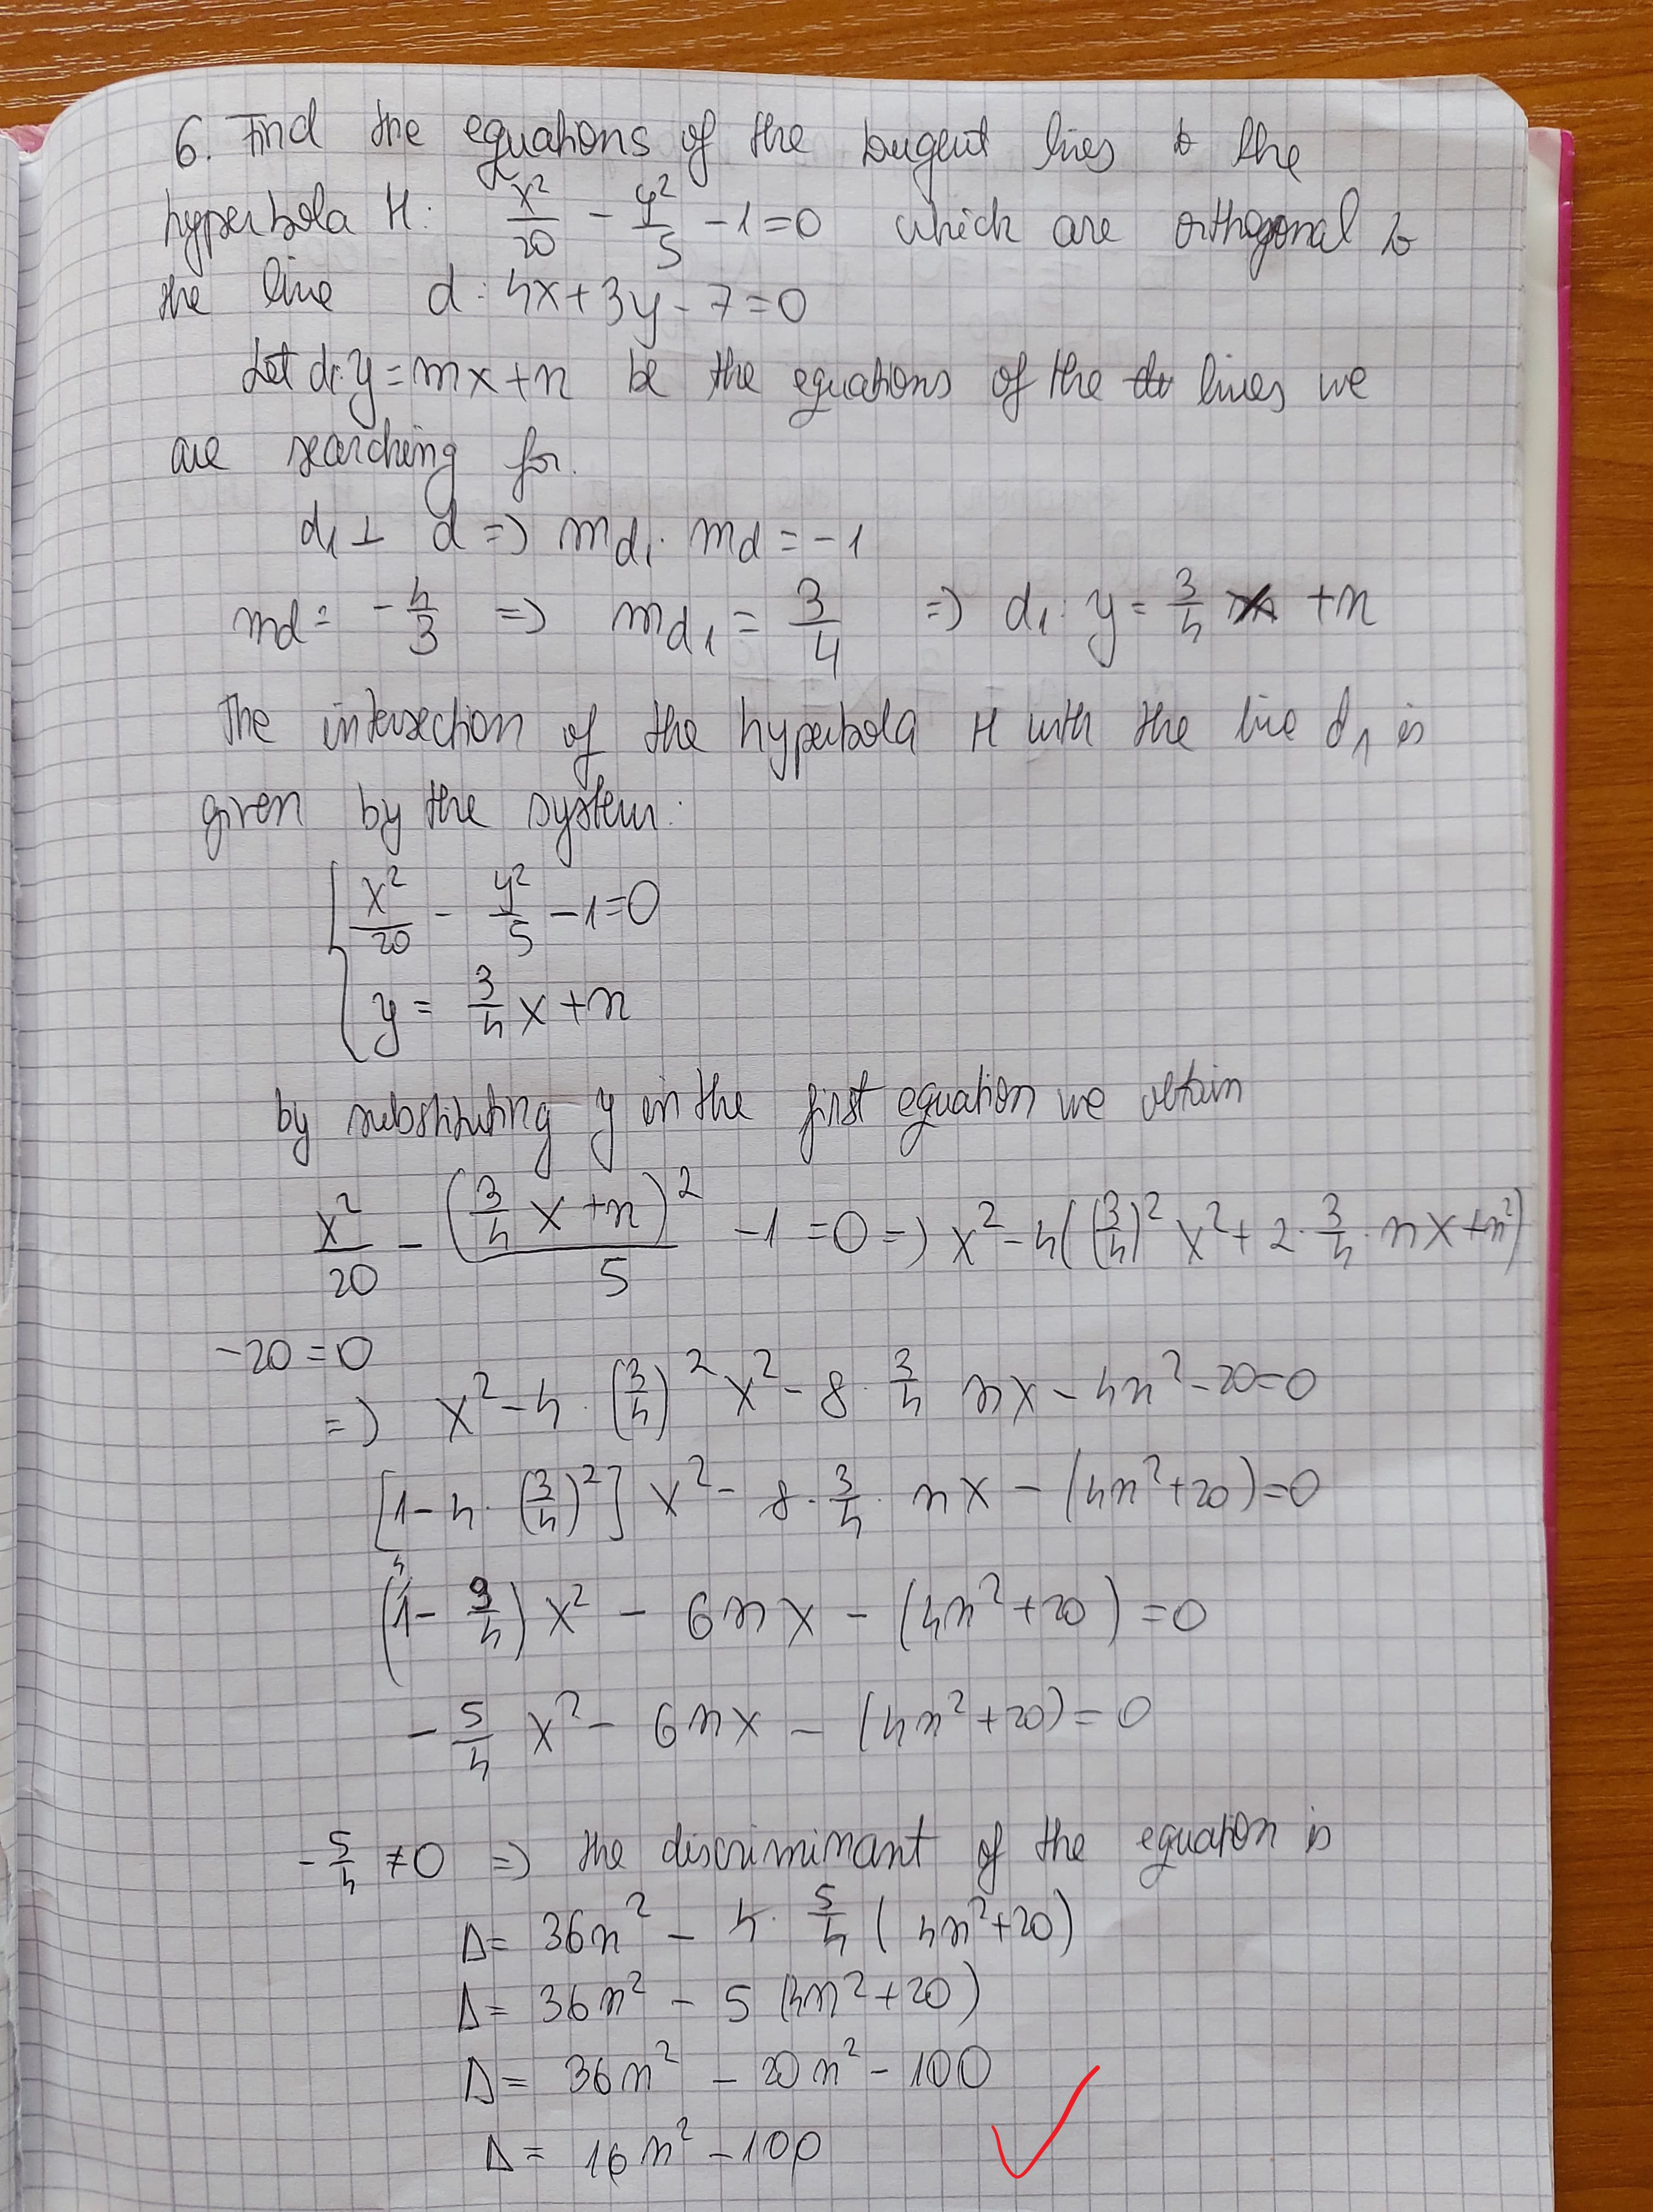 6. Find the equations of the tangent lines to the
hyperbola H: x²/20 - y²/5 - 1 = 0 which are orthogonal to
the line d: 4x + 3y - 7 = 0
Let d₁: y = mx + n be the equations of the lines we
are searching for.
d₁ ⊥ d => m_d₁ · m_d = -1
m_d = -4/3 => m_d₁ = 3/4 => d₁: y = 3/4 x + n
The intersection of the hyperbola H with the line d₁ is
given by the system:
{ x²/20 - y²/5 - 1 = 0
y = 3/4 x + n
by substituting y in the first equation we obtain
x²/20 - (3/4 x + n)²/5 - 1 = 0 => x² - 4((3/4)² x² + 2 · 3/4 · nx + n²)
-20 = 0
=> x² - 4 · (3/4)² x² - 8 · 3/4 nx - 4n² - 20 = 0
[1 - 4 · (3/4)²] x² - 8 · 3/4 · nx - (4n² + 20) = 0
(⁴1 - 9/4) x² - 6nx - (4n² + 20) = 0
-5/4 x² - 6nx - (4n² + 20) = 0
-5/4 ≠ 0 => the discriminant of the equation is
Δ = 36n² - 4 · 5/4 (4n² + 20)
Δ = 36n² - 5 (4n² + 20)
Δ = 36n² - 20n² - 100
Δ = 16n² - 100